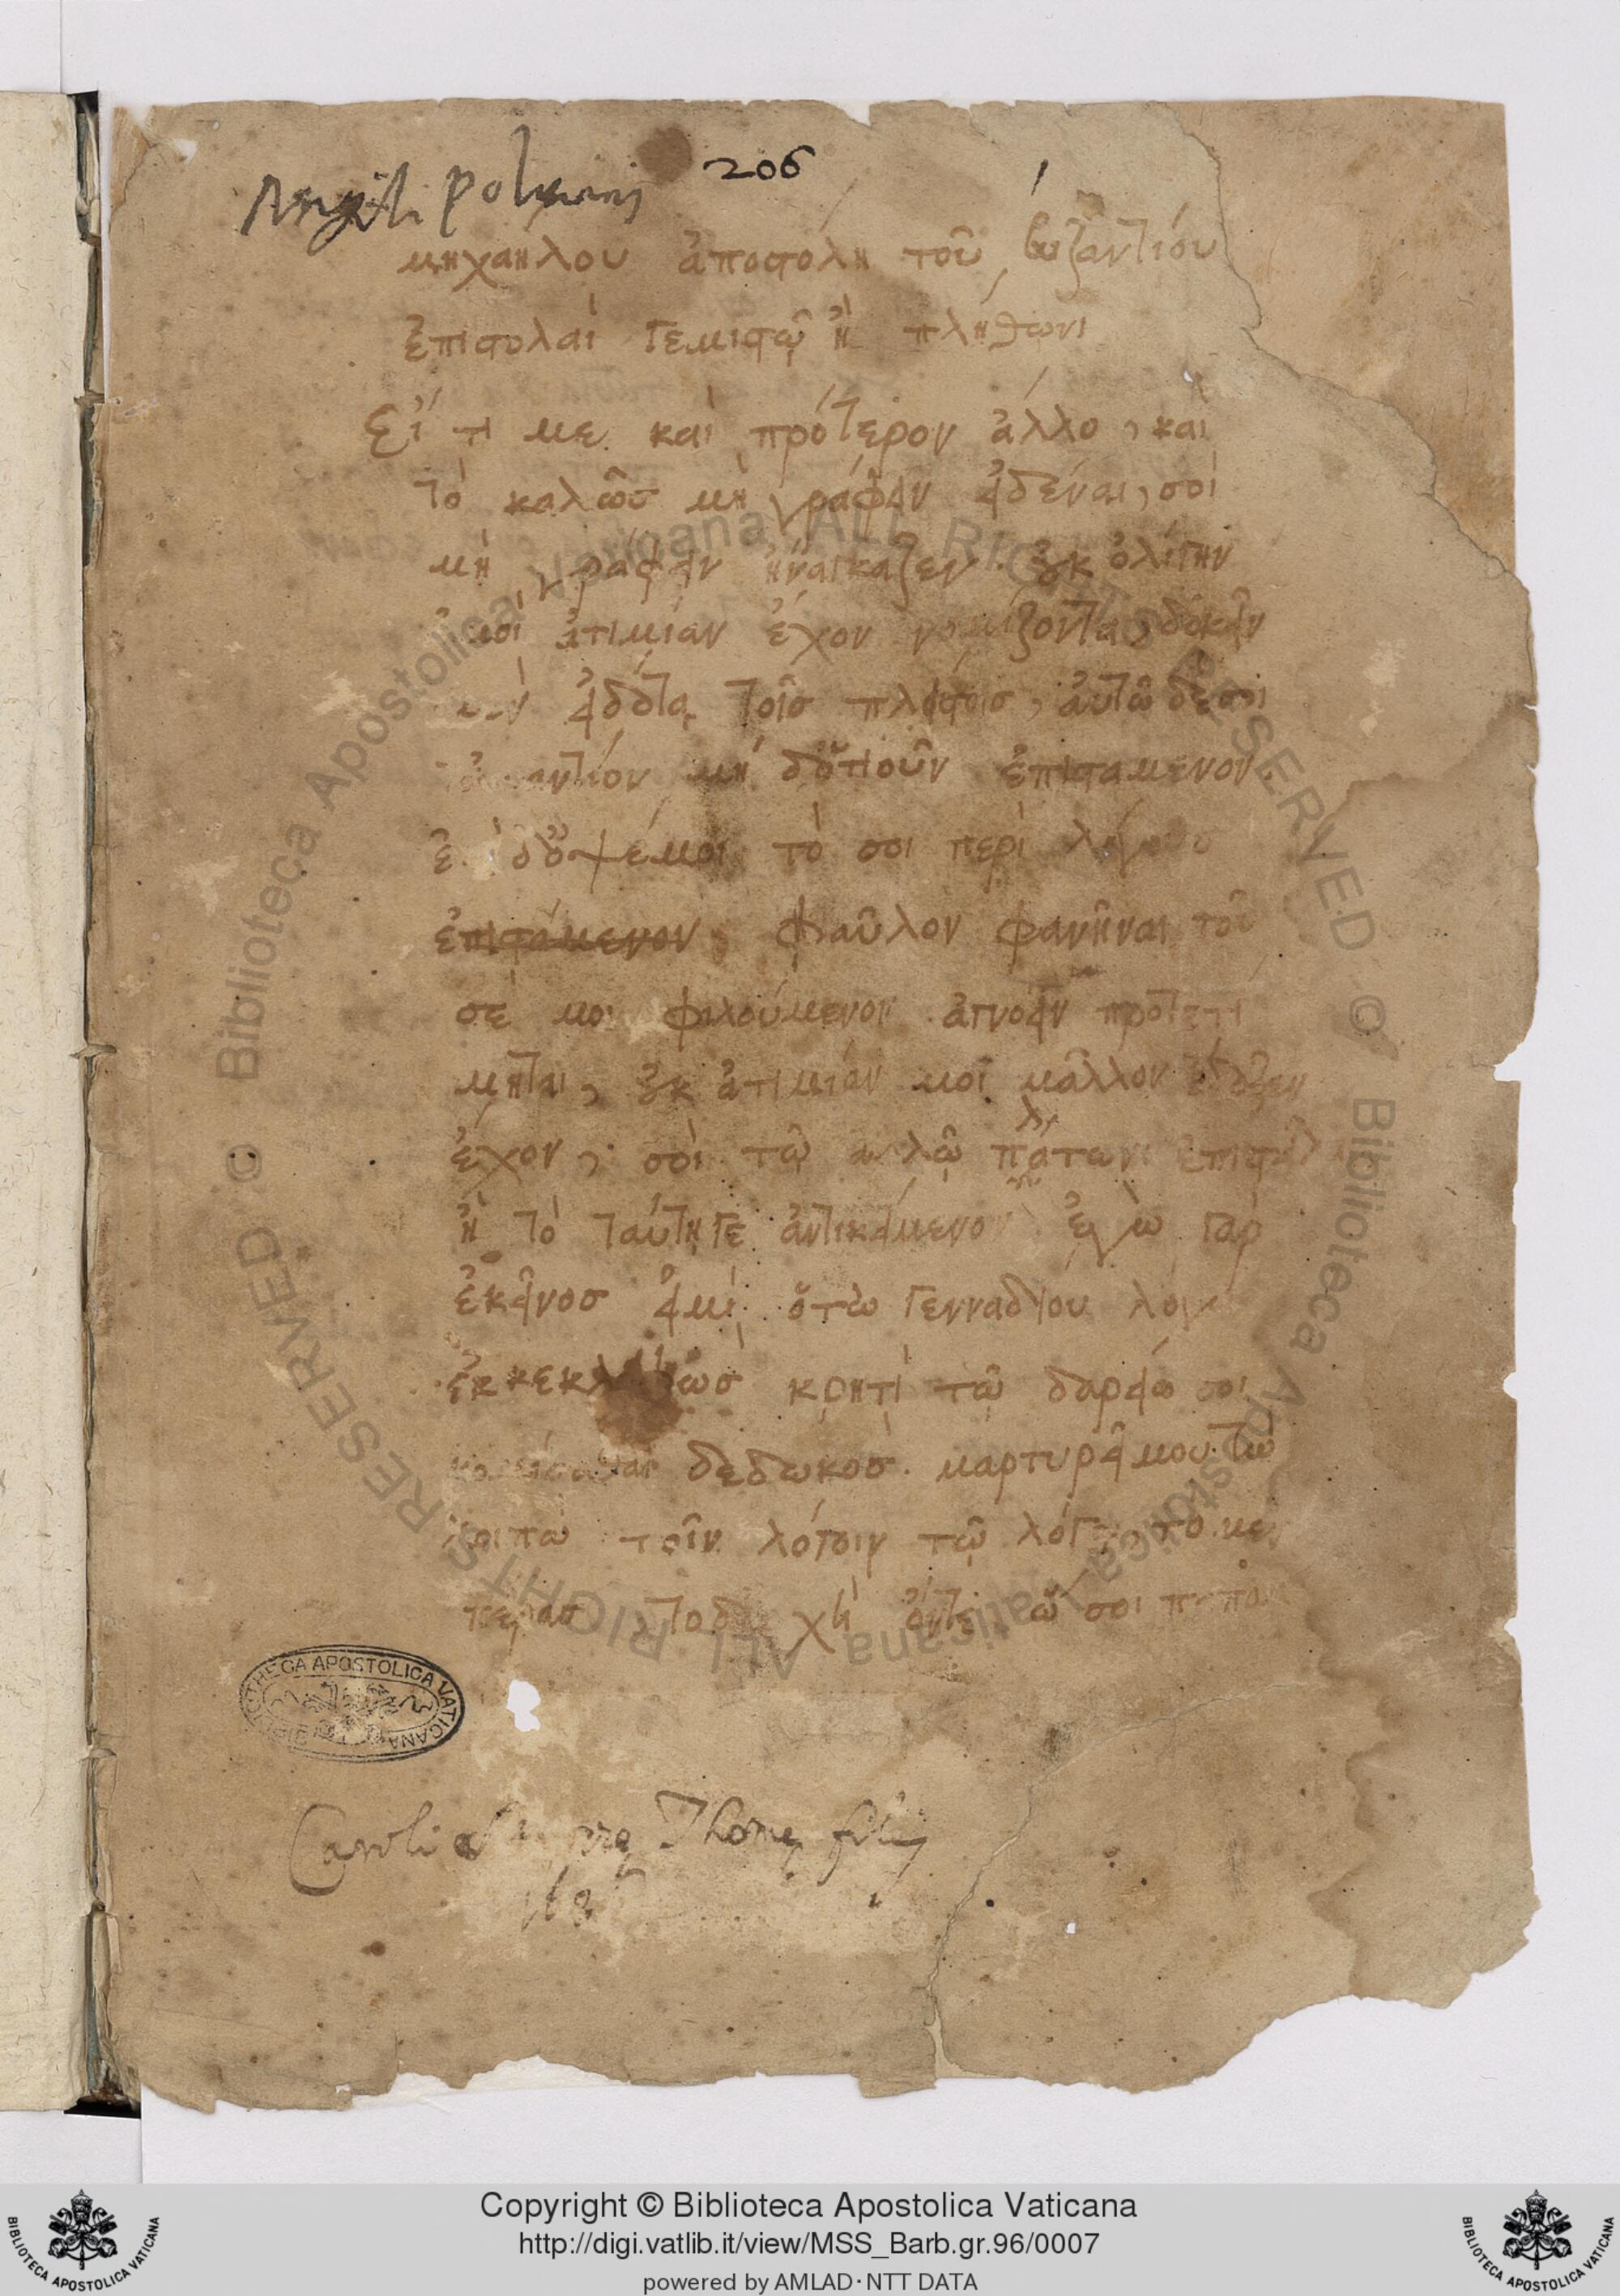 Angeli Politiani 206 1
μηχαήλου ἀποστόλη τοῦ βυζαντίου
ἐπιστολαὶ γεμιστῷ ἢ πλήθωνι
Εἴ τί με καὶ πρότερον ἄλλο, καὶ
τὸ καλῶσ μὴ γράφειν εἰδέναι, σοὶ
μὴ γράφειν ἠνάγκαζεν. οὐκ ὀλίγην
ἐμοὶ ἀτιμίαν ἔχον νομίζοντα, δοκεῖν
εἰδότα τοῖσ πλείστοισ, αὐτῶ δέ σοι
μὴ δὁτιοῦν ἐπιστάμενον.
τό σοι περὶ λόγουσ
ἐπιστάμενον, φαῦλον φανῆναι τοῦ
σέ μοι φιλούμενον ἀγνοεῖν προτετί
μηται, οὐκ ἀτιμίαν μοι μᾶλλον ἔδοξεν
ἔχον, σοὶ τῷ πλάτωνι
ἢ τὸ ταύτη γε ἀντικείμενον. ἐγὼ γὰρ
ἐκεῖνοσ εἰμὶ ὅτω γενναδίου
κρητὶ τῷ δαρείω σοι
δεδωκόσ. μαρτυρεῖ μου τῶ
τοῖν λόγοιν τῷ λόγω, το μεν
σοι
BIBLIOTHECA APOSTOLICA VATICANA
Caroli Thomę filij
© Biblioteca Apostolica Vaticana ALL RIGHTS RESERVED © Biblioteca Apostolica Vaticana ALL RIGHTS RESERVED
Copyright © Biblioteca Apostolica Vaticana
http://digi.vatlib.it/view/MSS_Barb.gr.96/0007
powered by AMLAD·NTT DATA
BIBLIOTECA APOSTOLICA VATICANA
BIBLIOTECA APOSTOLICA VATICANA